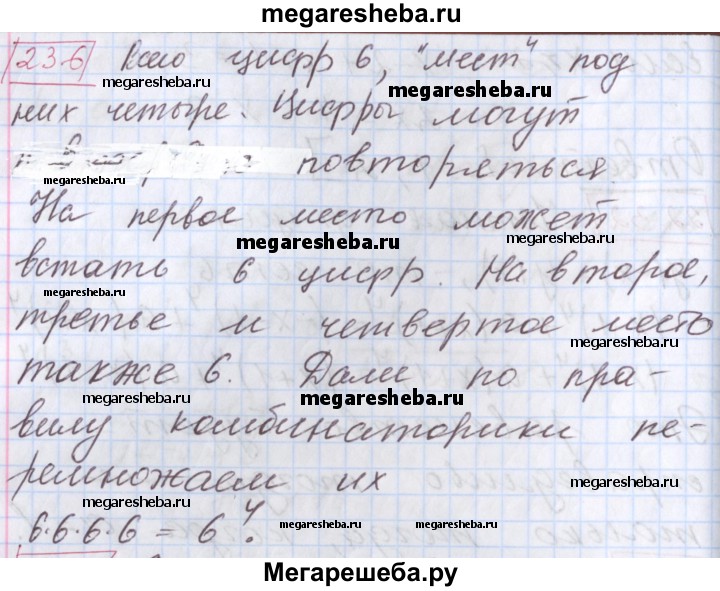 megaresheba.ru
236 Всего цифр 6, "мест" под
megaresheba.ru
megaresheba.ru
них четыре. Цифры могут
повторяться
megaresheba.ru
На первое место может
megaresheba.ru
megaresheba.ru
встать 6 цифр. На второе,
megaresheba.ru
третье и четвертое место
также 6. Далее по пра-
megaresheba.ru
megaresheba.ru
вилу комбинаторики пе-
ремножаем их
megaresheba.ru
megaresheba.ru
6·6·6·6 = 6⁴.
megaresheba.ru
megaresheba.ru
Мегарешеба.ру